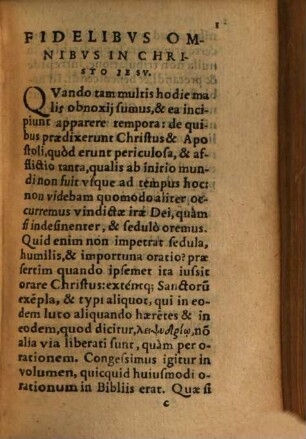 1
FIDELIBVS OM-
NIBVS IN CHRI-
STO IESV.
QVando tam multis hodie ma
lis obnoxij sumus, & ea inci
piunt apparere tempora: de qui
bus prædixerunt Christus & Apo
stoli, quòd erunt periculosa, & af
flictio tanta, qualis ab initio mun
di non fuit vsque ad tempus hoc:
non videbam quomodo aliter oc
curremus vindictæ iræ Dei, quàm
si indesinenter, & sedulò oremus.
Quid enim non impetrat sedula,
humilis, & importuna oratio? præ
sertim quando ipsemet ita iussit
orare Christus: extétq; Sanctorũ
exẽpla, & typi aliquot, qui in eo-
dem luto aliquando hærẽtes & in
eodem, quod dicitur, nõ
alia via liberati sunt, quàm per o-
rationem. Congessimus igitur in
volumen, quicquid huiusmodi o-
rationum in Bibliis erat. Quæ si
c